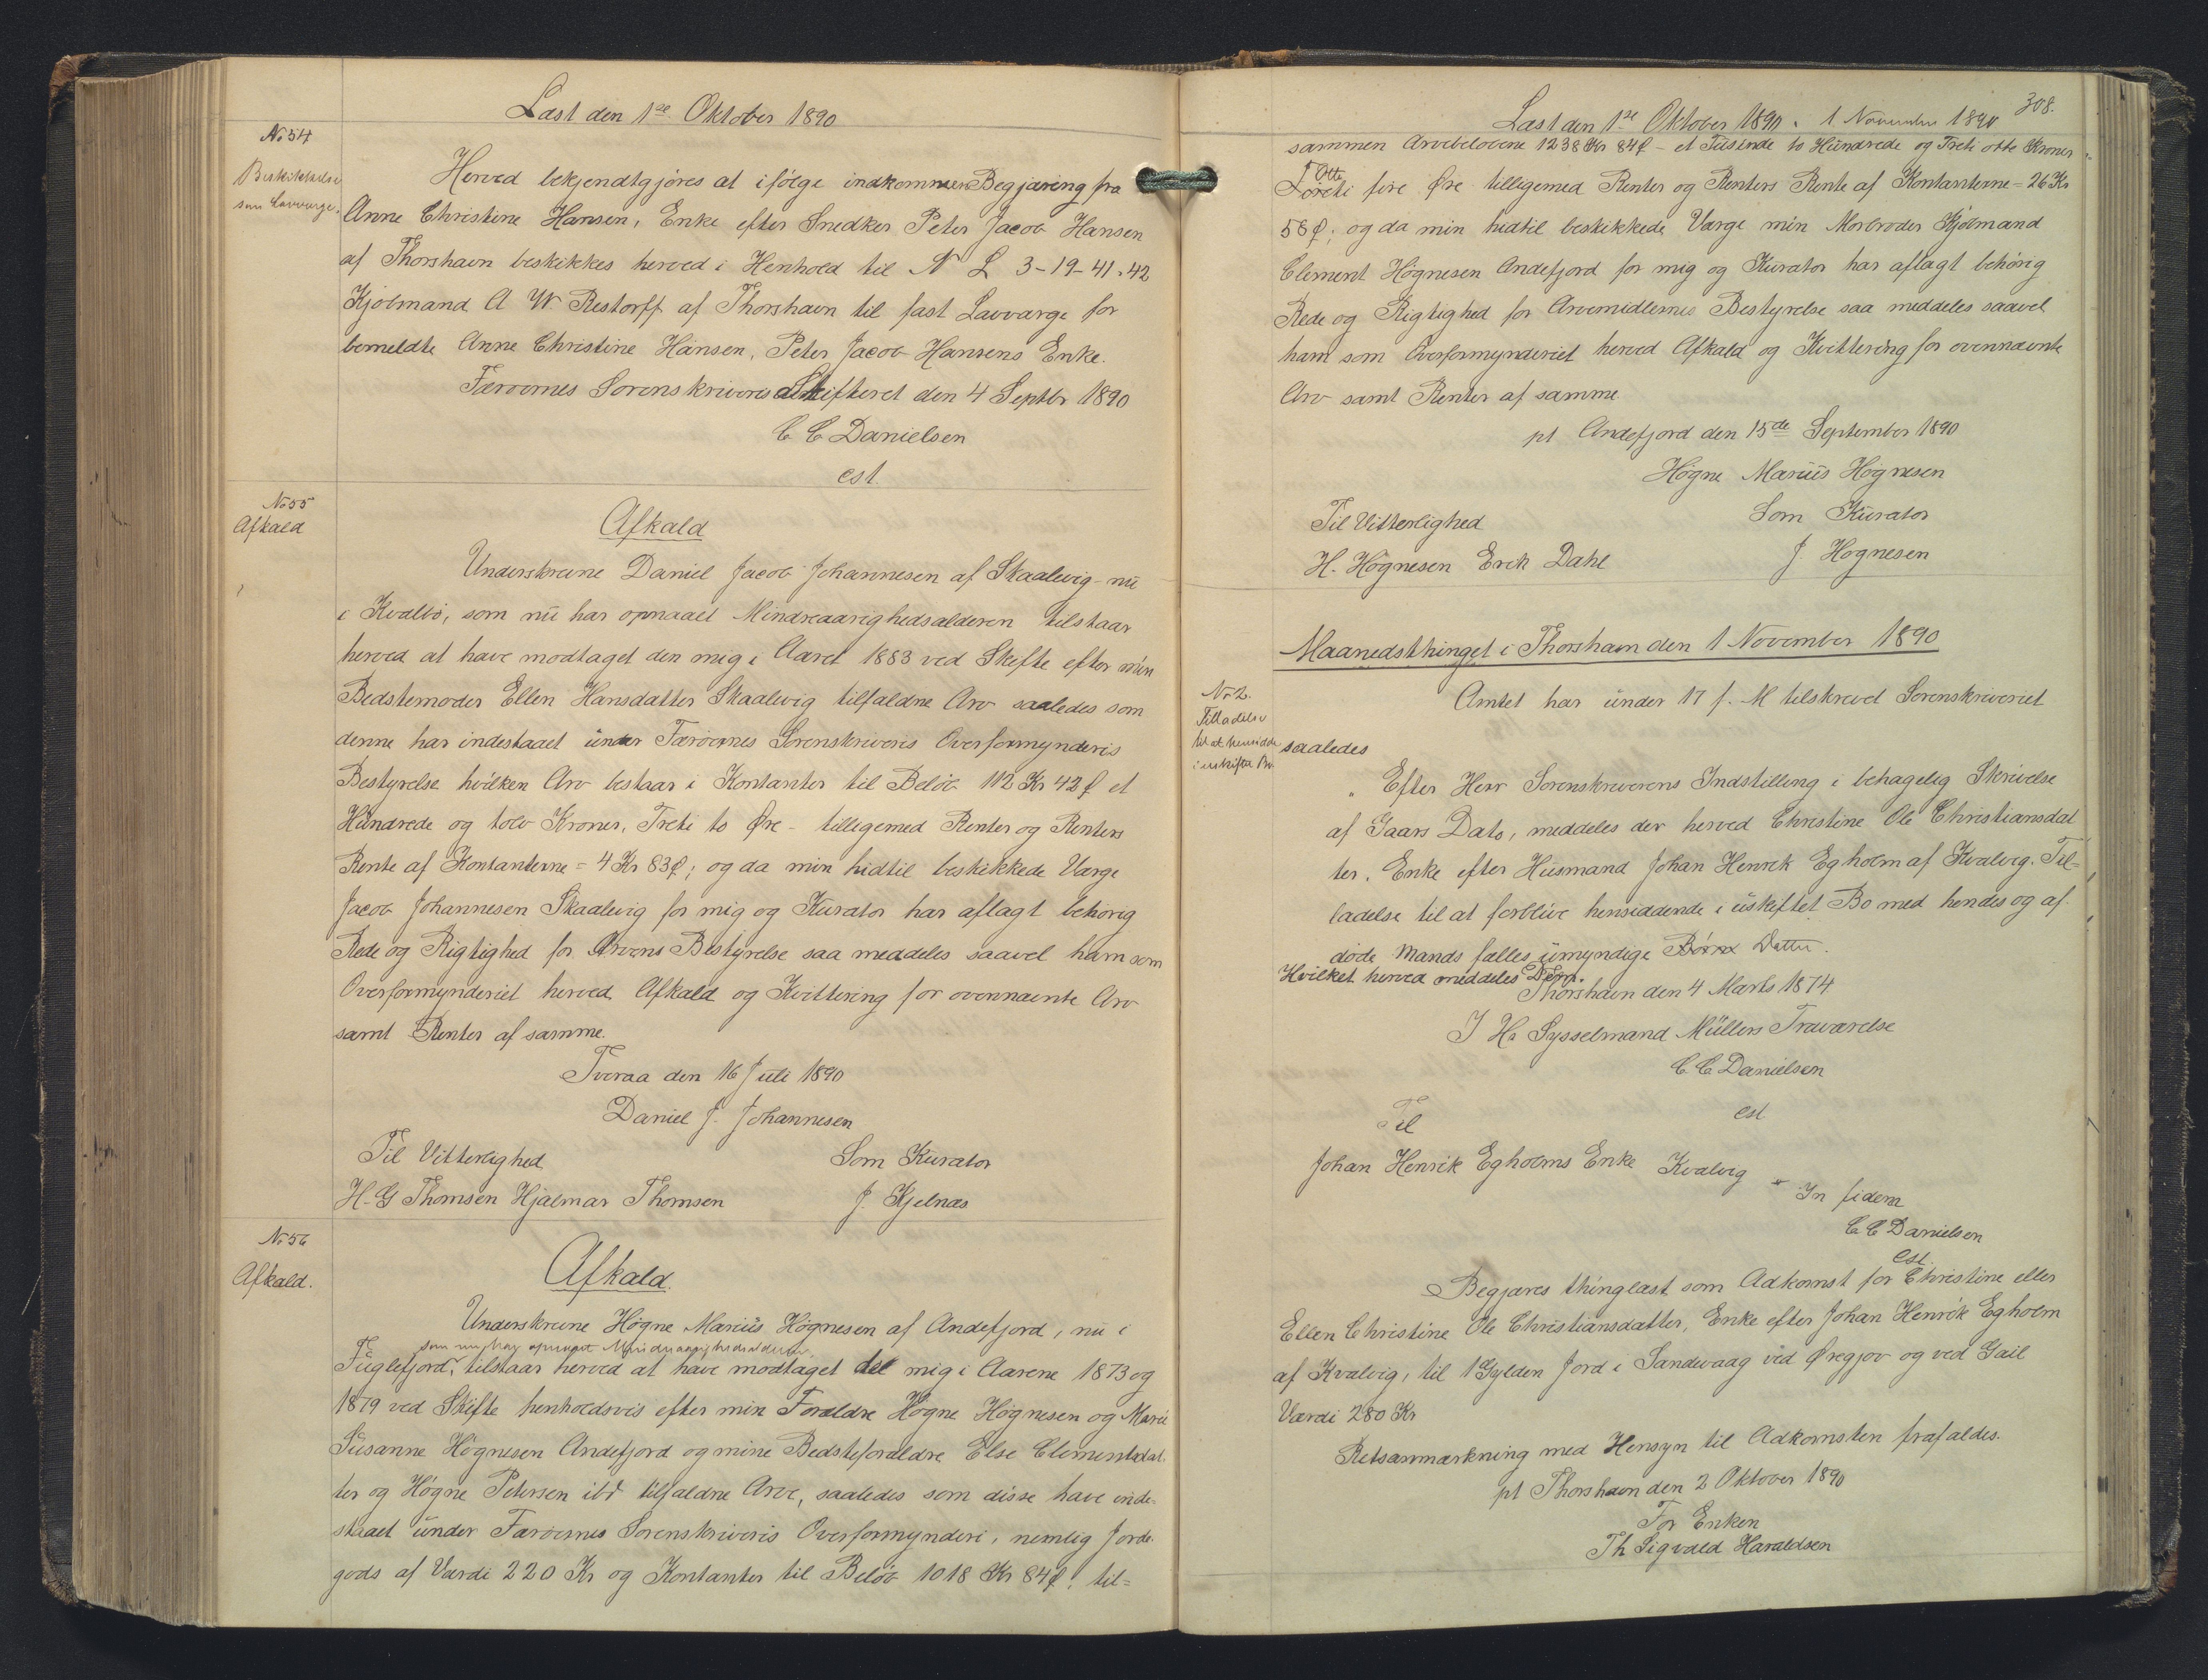 Læst den 1ste Oktober 1890
No 54
Beskikkelse
som Lavværge.
Herved bekjendtgjøres at ifølge indkommen Begjæring fra
Anne Christine Hansen, Enke efter Snedker Peter Jacob Hansen
af Thorshavn beskikkes herved i Henhold til N L 3-19-41 & 42
Kjøbmand A W. Restorff af Thorshavn til fast Lavværge for
bemeldte Anne Christine Hansen, Peter Jacob Hansens Enke.
Færøernes Sorenskriveri Skifteret den 4 Septbr 1890
C C Danielsen
cst
No 55
Afkald
Afkald
Underskrevne Daniel Jacob Johannesen af Skaalevig - nu
i Kvalbø, som nu har opnaaet Mindreaarighedsalderen tilstaar
herved at have modtaget den mig i Aaret 1883 ved Skifte efter min
Bedstemoder Ellen Hansdatter Skaalevig tilfaldne Arv saaledes som
denne har indestaaet under Færøernes Sorenskriveris Overformynderis
Bestyrelse hvilken Arv bestaar i Kontanter til Beløb 112 Kr 42 ø et
Hundrede og tolv Kroner, Treti to Øre - tilligemed Renter og Renters
Rente af Kontanterne = 4 Kr 83 ø; og da min hidtil beskikkede Værge
Jacob Johannesen Skaalevig for mig og Kurator har aflagt behørig
Rede og Rigtighed for Arvens Bestyrelse saa meddeles saavel ham som
Overformynderiet herved Afkald og Kvittering for ovennævnte Arv
samt Renter af samme.
Tveraa den 16 Juli 1890
Daniel J. Johannesen
Til Vitterlighed Som Kurator
H. G Thomsen Hjalmar Thomsen J. Kjelnæs
No 56
Afkald.
Afkald.
Underskrevne Høgne Marius Høgnesen af Andefjord, nu i
som nu har opnaaet Mindreaarighedsalderen
Fuglefjord, tilstaar herved at have modtaget det mig i Aarene 1873 og
1879 ved Skifte henholdsvis efter min Forældre Høgne Høgnesen og Marie
Susanne Høgnesen Andefjord og mine Bedsteforældre Else Clementsdat-
ter og Høgne Petersen ibd tilfaldne Arve, saaledes som disse have inde-
staaet under Færøernes Sorenskriveris Overformynderi, nemlig Jorde-
gods af Værdi 220 Kr og Kontanter til Beløb 1018 Kr 84 ø; til=
308.
Læst den 1ste Oktober 1890. 1 November 1890
sammen Arvebeløbene 1238 Kr 84 ø - et Tusinde to Hundrede og Treti otte Kroner
Otte
Foreti fire Øre tilligemed Renter og Renters Rente af Kontanterne = 26 Kr
58 ø; og da min hidtil beskikkede Værge min Morbroder Kjøbmand
Clement Høgnesen Andefjord for mig og Kurator har aflagt behørig
Rede og Rigtighed for Arvemidlernes Bestyrelse saa meddeles saavel
ham som Overformynderiet herved Afkald og Kvittering for ovennævnte
Arv samt Renter af samme.
pt Andefjord den 15de September 1890
Høgne Marius Høgnesen
Til Vitterlighed Som Kurator
H. Høgnesen Erik Dahl J. Høgnesen
Maanedsthinget i Thorshavn den 1 November 1890
No 2.
Tilladelse
til at hensidde
i uskiftet Bo
Amtet har under 17 f. M tilskrevet Sorenskriveriet
saaledes
„ Efter Herr Sorenskriverens Indstilling i behagelig Skrivelse
af Gaars Dato, meddeles der herved Christine Ole Christiansdat
ter, Enke efter Husmand Johan Henrik Egholm af Kvalvig. Til=
ladelse til at forblive hensiddende i uskiftet Bo med hendes og af
døde Mands fælles umyndige Børn Datter.
Hvilket herved meddeles Dem.
Thorshavn den 4 Marts 1874
I Hr Sysselmand Müllers Fraværelse
C C Danielsen
cst
Til
Johan Henrik Egholms Enke Kvalvig
In fidem
C C Danielsen
cst.
Begjæres thinglæst som Adkomst for Christine eller
Ellen Christine Ole Christiansdatter, Enke efter Johan Henrik Egholm
af Kvalvig, til 1 Gylden Jord i Sandevaag ved Øregjov og ved Gail
Værdi 280 Kr
Retsanmærkning med Hensyn til Adkomsten frafaldes.
pt Thorshavn den 2 Oktober 1890
For Enken
Th Sigvald Haraldsen